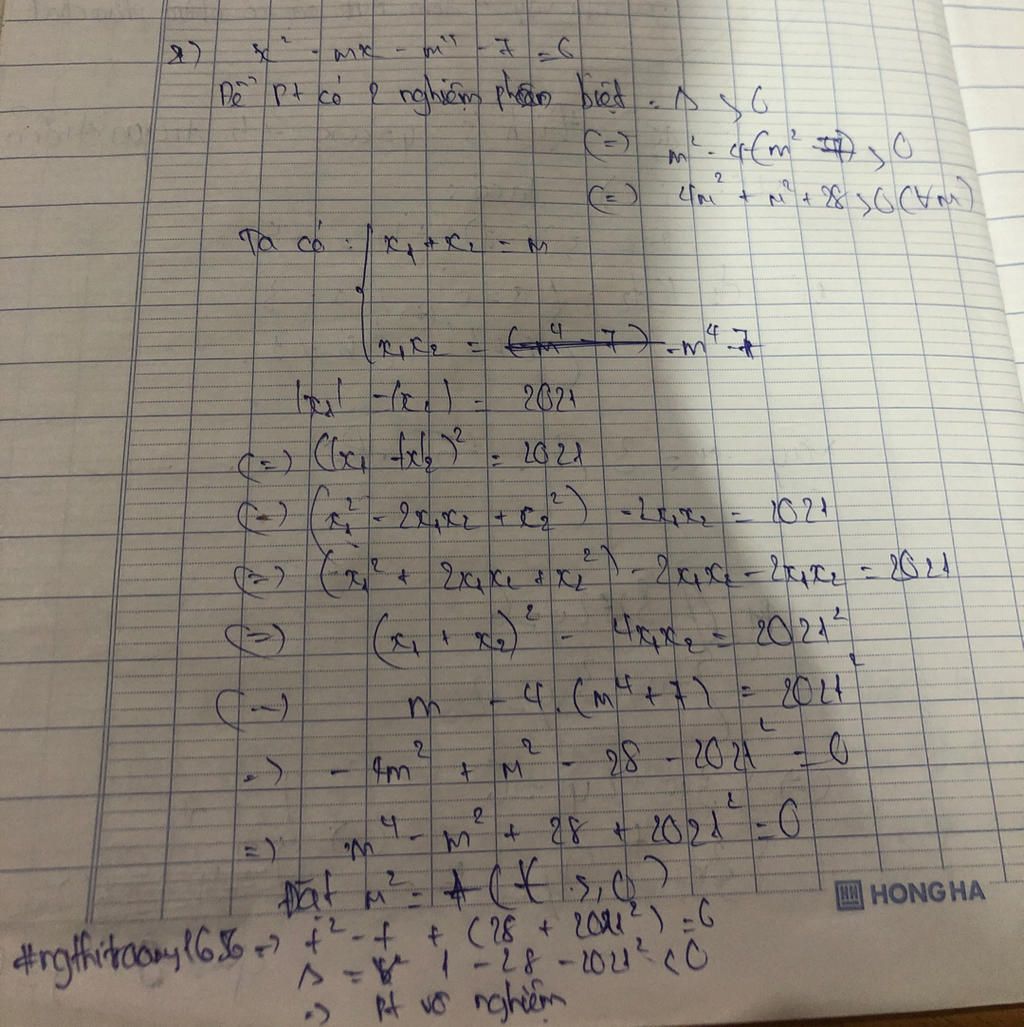 2) x² - mx - m⁴ - 7 = 0
Để pt có 2 nghiệm phân biệt : Δ > 0
(=) m² - 4(m² - 7) > 0
(=) 4m² + m² + 28 > 0 (∀m)
Ta có : { x₁ + x₂ = m
x₁x₂ = -m⁴ - 7
|x₁| - |x₂| = 2021
(=) (|x₁ - |x|₂)² = 2021
(=) (x₁² - 2x₁x₂ + x₂²) - 2x₁x₂ = 2021
(=) (x₁² + 2x₁x₂ + x₂²) - 2x₁x₂ - 2x₁x₂ = 2021
(=) (x₁ + x₂)² - 4x₁x₂ = 2021²
(=) m - 4.(m⁴ + 7) = 2021²
=) - 4m² + m² - 28 - 2021² = 0
=) m⁴ - m² + 28 + 2021² = 0
Đặt m² = t (t ≥, 0)
HONG HA
=) t² - t + (28 + 2021²) = 0
Δ = 1 - 28 - 2021² < 0
=) pt vô nghiệm